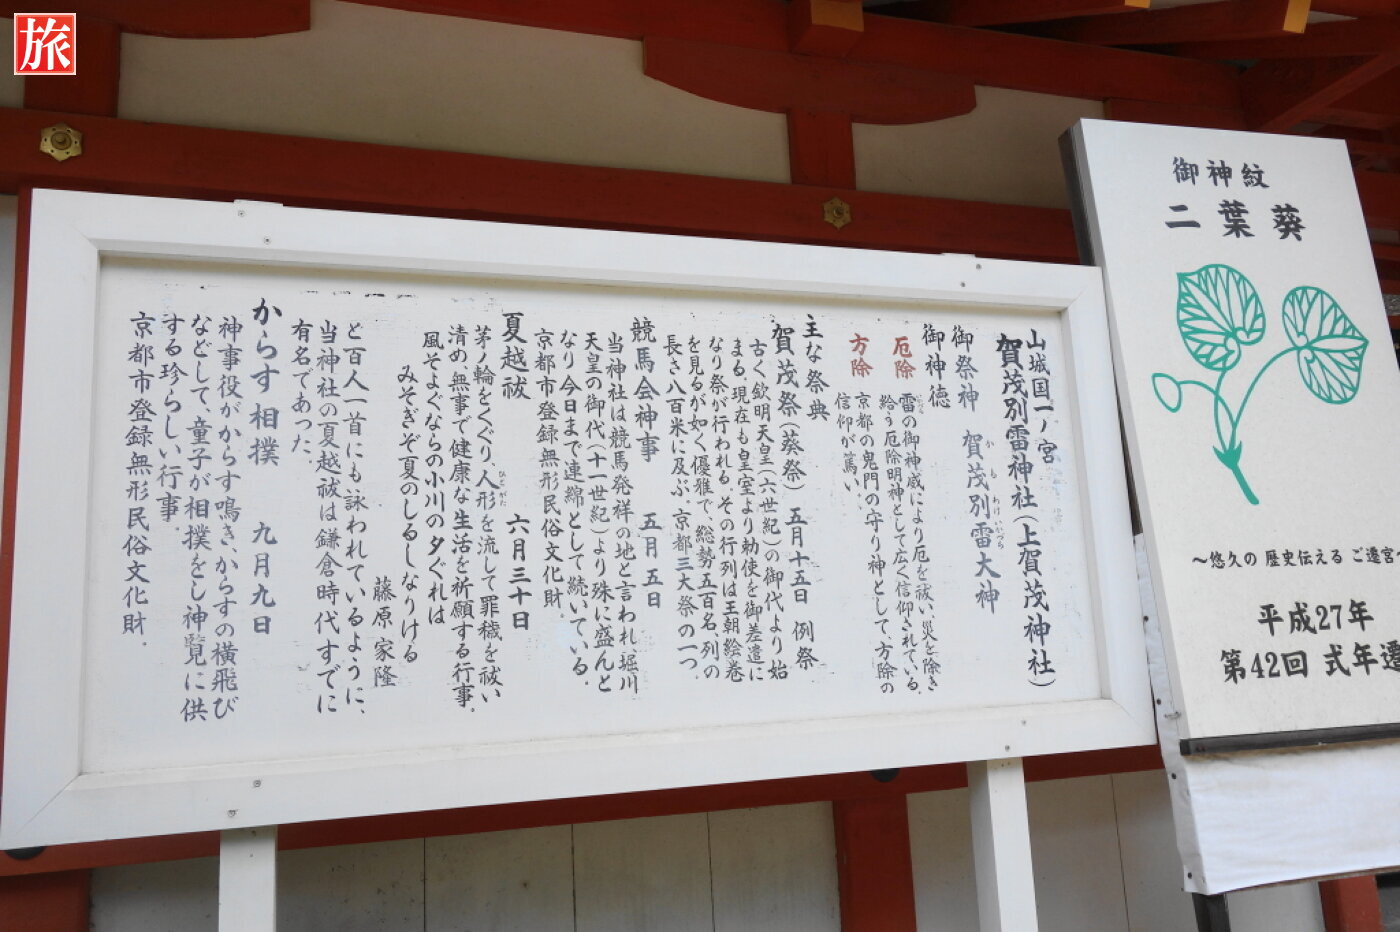 旅
山城国一ノ宮
賀茂別雷神社(上賀茂神社)
御祭神 賀茂別雷大神
かもわけいかづち
御神徳
厄除 雷の御神威により厄を祓い、災を除き
給う厄除明神として広く信仰されている。
方除 京都の鬼門の守り神として、方除の
信仰が篤い。
主な祭典
賀茂祭(葵祭) 五月十五日 例祭
古く欽明天皇(六世紀)の御代より始
まる。現在も皇室より勅使を御差遣に
なり祭が行われる。その行列は王朝絵巻
を見るが如く優雅で、総勢五百名、列の
長さ八百米に及ぶ。京都三大祭の一つ。
競馬会神事 五月五日
当神社は競馬発祥の地と言われ、堀川
天皇の御代(十一世紀)より殊に盛んと
なり今日まで連綿として続いている。
京都市登録無形民俗文化財.
夏越祓 六月三十日
茅ノ輪をくぐり、人形を流して罪穢を祓い
ひとがた
清め、無事で健康な生活を祈願する行事。
風そよぐならの小川の夕ぐれは
みそぎぞ夏のしるしなりける
藤原家隆
と百人一首にも詠われているように、
当神社の夏越祓は鎌倉時代すでに
有名であった.
からす相撲 九月九日
神事役がからす鳴き、からすの横飛び
などして、童子が相撲をし神覧に供
する珍らしい行事.
京都市登録無形民俗文化財.
御神紋
二葉葵
〜悠久の 歴史伝える ご遷宮
平成27年
第42回 式年遷